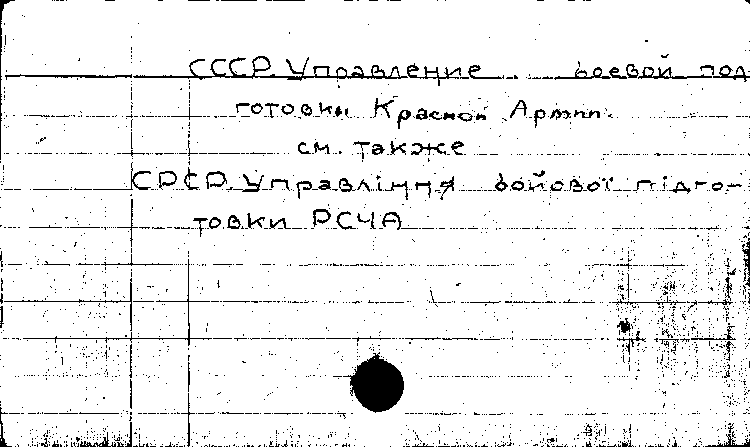 СССР. Управление боевой под
готовки Красной Армии.
см. также
СРСР. Управління бойової підго-
товки РСЧА